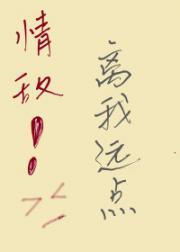 情敌!!
离我远点